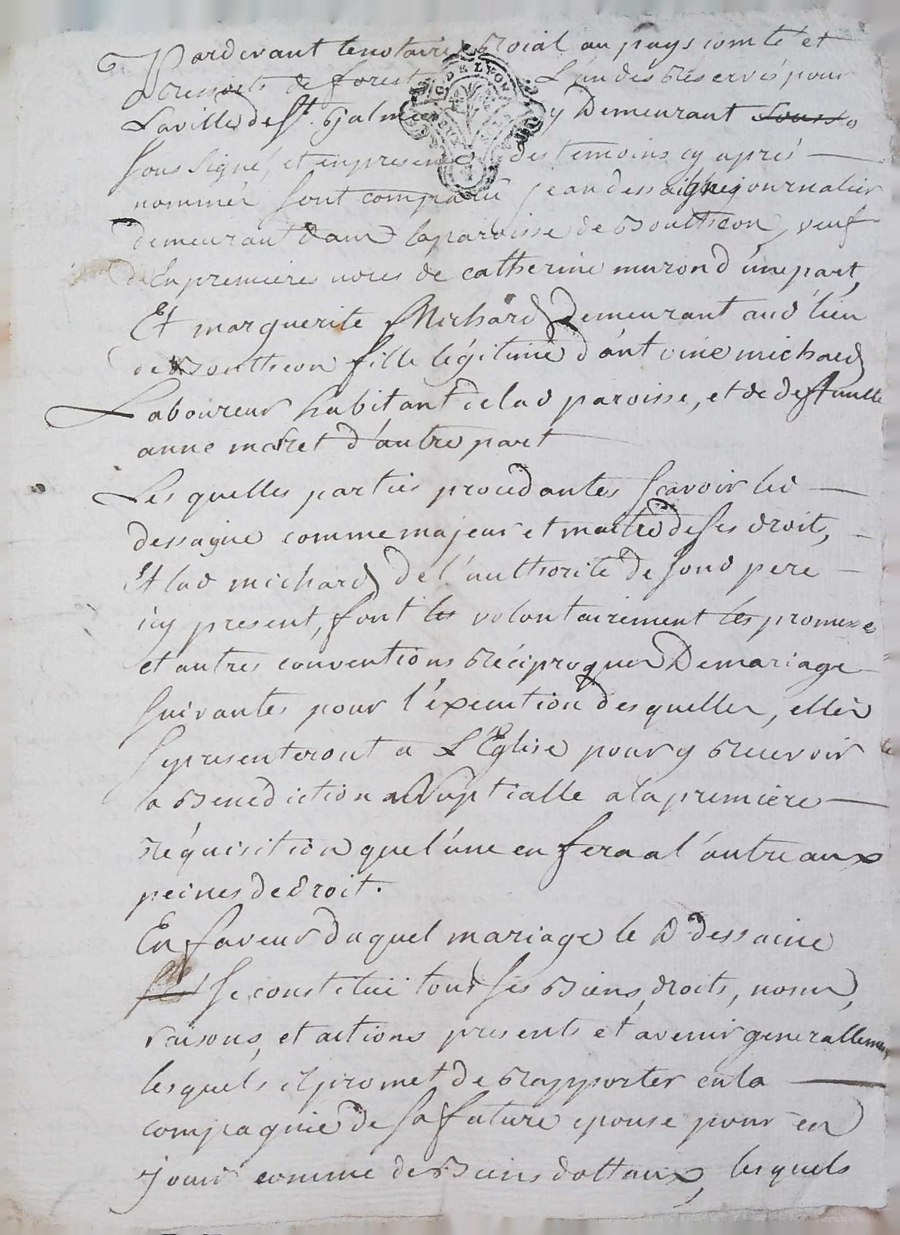 Pardevant le notaire Roial au pays comté et
ressorts de forest L'un des Réservés pour
La ville de St. Galmier y Demeurant sousso
sous signé, et en presence des temoins cy aprés
nommés sont comparu jean dessaigne journalier
demeurant dans la paroisse de Bouttheon, veuf
d'En premieres noces de catherine muron d'une part,
Et marguerite Michard Demeurant aud lieu
de Bouttheon fille légitime d'antoine michard
Laboureur habitant de lad paroisse, et de deffunte
anne maret d'autre part
Les quelles parties procedantes sçavoir led
dessaigne comme majeur et maitre de ses droits,
Et lad michard de l'authorité de sond pere
icy present, font les volontairement les promesses
et autres conventions Réciproques De mariage
suivantes pour l'éxecution desquelles, elles
se presenteront a L'Eglise pour y Recevoir
la Benediction Nuptialle a la premiere
Réquisition que l'une en fera a l'autre aux
peines de droit.
En faveur duquel mariage le Dt dessaine
se constitue tous ses Biens, droits, noms,
raisons, et actions presents et avenir generallement
lesquels il promet de Rapporter en la
compagnie de sa future epouse pour en
jouir comme de Biens dottaux, lesquels
G. DE LYON